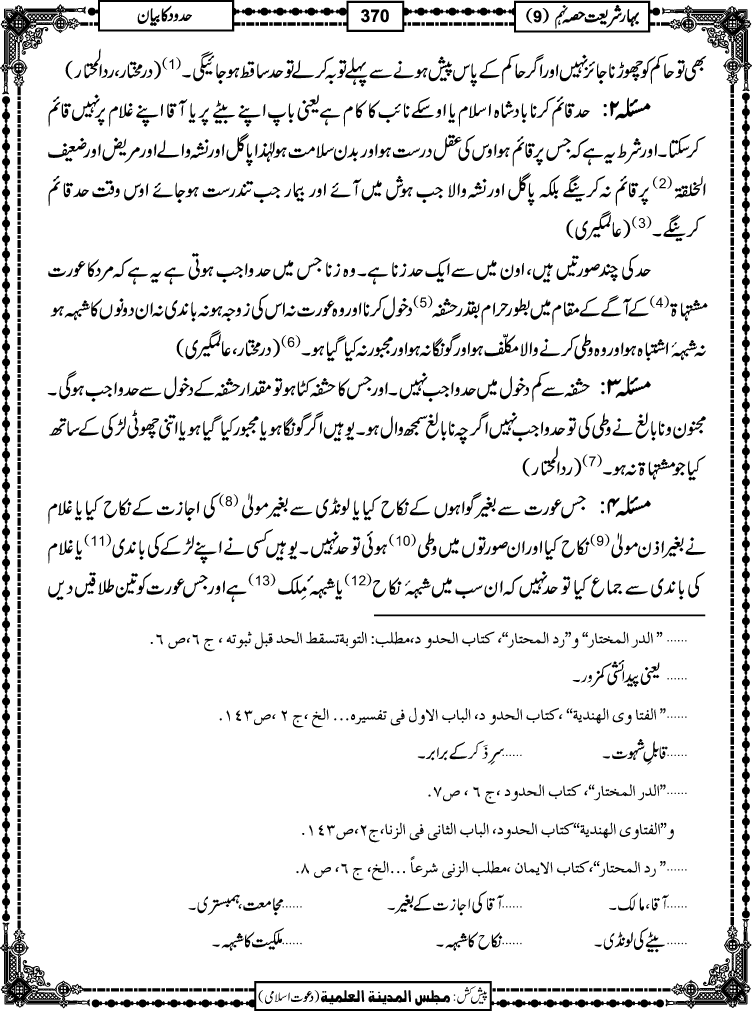 بہار شریعت حصہ نہم (9)
370
حدود کا بیان
بھی تو حاکم کو چھوڑنا جائز نہیں اور اگر حاکم کے پاس پیش ہونے سے پہلے توبہ کر لے تو حد ساقط ہو جائیگی۔(1) (درمختار، ردالمحتار)
مسئلہ ۲: حد قائم کرنا بادشاہ اسلام یا اوسکے نائب کا کام ہے یعنی باپ اپنے بیٹے پر یا آقا اپنے غلام پر نہیں قائم
کرسکتا۔ اور شرط یہ ہے کہ جس پر قائم ہو اوس کی عقل درست ہو اور بدن سلامت ہو لہٰذا پاگل اور نشہ والے اور مریض اور ضعیف
الخلقۃ (2) پر قائم نہ کرینگے بلکہ پاگل اور نشہ والا جب ہوش میں آئے اور بیمار جب تندرست ہو جائے اوس وقت حد قائم
کرینگے۔(3) (عالمگیری)
حد کی چند صورتیں ہیں، اون میں سے ایک حد زنا ہے۔ وہ زنا جس میں حد واجب ہوتی ہے یہ ہے کہ مرد کا عورت
مشتہاۃ (4) کے آگے کے مقام میں بطور حرام بقدر حشفہ (5) دخول کرنا اور وہ عورت نہ اس کی زوجہ ہو نہ باندی نہ ان دونوں کا شبہہ ہو
نہ شبہۂ اشتباہ ہو اور وہ وطی کرنے والا مکلّف ہو اور گونگا نہ ہو اور مجبور نہ کیا گیا ہو۔(6) (درمختار، عالمگیری)
مسئلہ ۳: حشفہ سے کم دخول میں حد واجب نہیں۔ اور جس کا حشفہ کٹا ہو تو مقدار حشفہ کے دخول سے حد واجب ہوگی۔
مجنون و نابالغ نے وطی کی تو حد واجب نہیں اگرچہ نابالغ سمجھ وال ہو۔ یوہیں اگر گونگا ہو یا مجبور کیا گیا ہو یا اتنی چھوٹی لڑکی کے ساتھ
کیا جو مشتہاۃ نہ ہو۔(7) (ردالمحتار)
مسئلہ ۴: جس عورت سے بغیر گواہوں کے نکاح کیا یا لونڈی سے بغیر مولیٰ (8) کی اجازت کے نکاح کیا یا غلام
نے بغیر اذن مولیٰ (9) نکاح کیا اور ان صورتوں میں وطی (10) ہوئی تو حد نہیں۔ یوہیں کسی نے اپنے لڑکے کی باندی (11) یا غلام
کی باندی سے جماع کیا تو حد نہیں کہ ان سب میں شبہۂ نکاح (12) یا شبہۂ مِلک (13) ہے اور جس عورت کو تین طلاقیں دیں
...... ”الدر المختار“ و”رد المحتار“، کتاب الحدود،مطلب: التوبة تسقط الحد قبل ثبوته ، ج ٦،ص ٦.
...... یعنی پیدائشی کمزور۔
......”الفتاوی الهندية“ ،کتاب الحدود، الباب الاول فی تفسیره... الخ ،ج ٢ ،ص١٤٣.
......قابلِ شہوت۔ ......سرِ ذَکر کے برابر۔
......”الدر المختار“، کتاب الحدود ،ج ٦ ، ص٧.
و”الفتاوی الهندية“کتاب الحدود، الباب الثانی فی الزنا،ج٢،ص١٤٣.
......” رد المحتار“،کتاب الایمان ،مطلب الزنی شرعاً ...الخ، ج ٦، ص ٨.
......آقا، مالک۔ ......آقا کی اجازت کے بغیر۔ ......مجامعت، ہمبستری۔
......بیٹے کی لونڈی۔ ......نکاح کا شبہہ۔ ......ملکیت کا شبہہ۔
پیش کش: مجلس المدینة العلمیة (دعوت اسلامی)